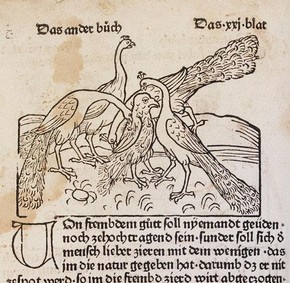 Das ander bůch
Das·xxj·blat
Von frembdem gůtt soll nyemandt geuden·
noch ze hoch tragend sein·sunder soll sich ð
mensch lieber zieren mit dem wenigen·das
jm die natur gegeben hat·darumb dz er nit
ze spot werd·so jm die frembd zierd wirt abgezogen·